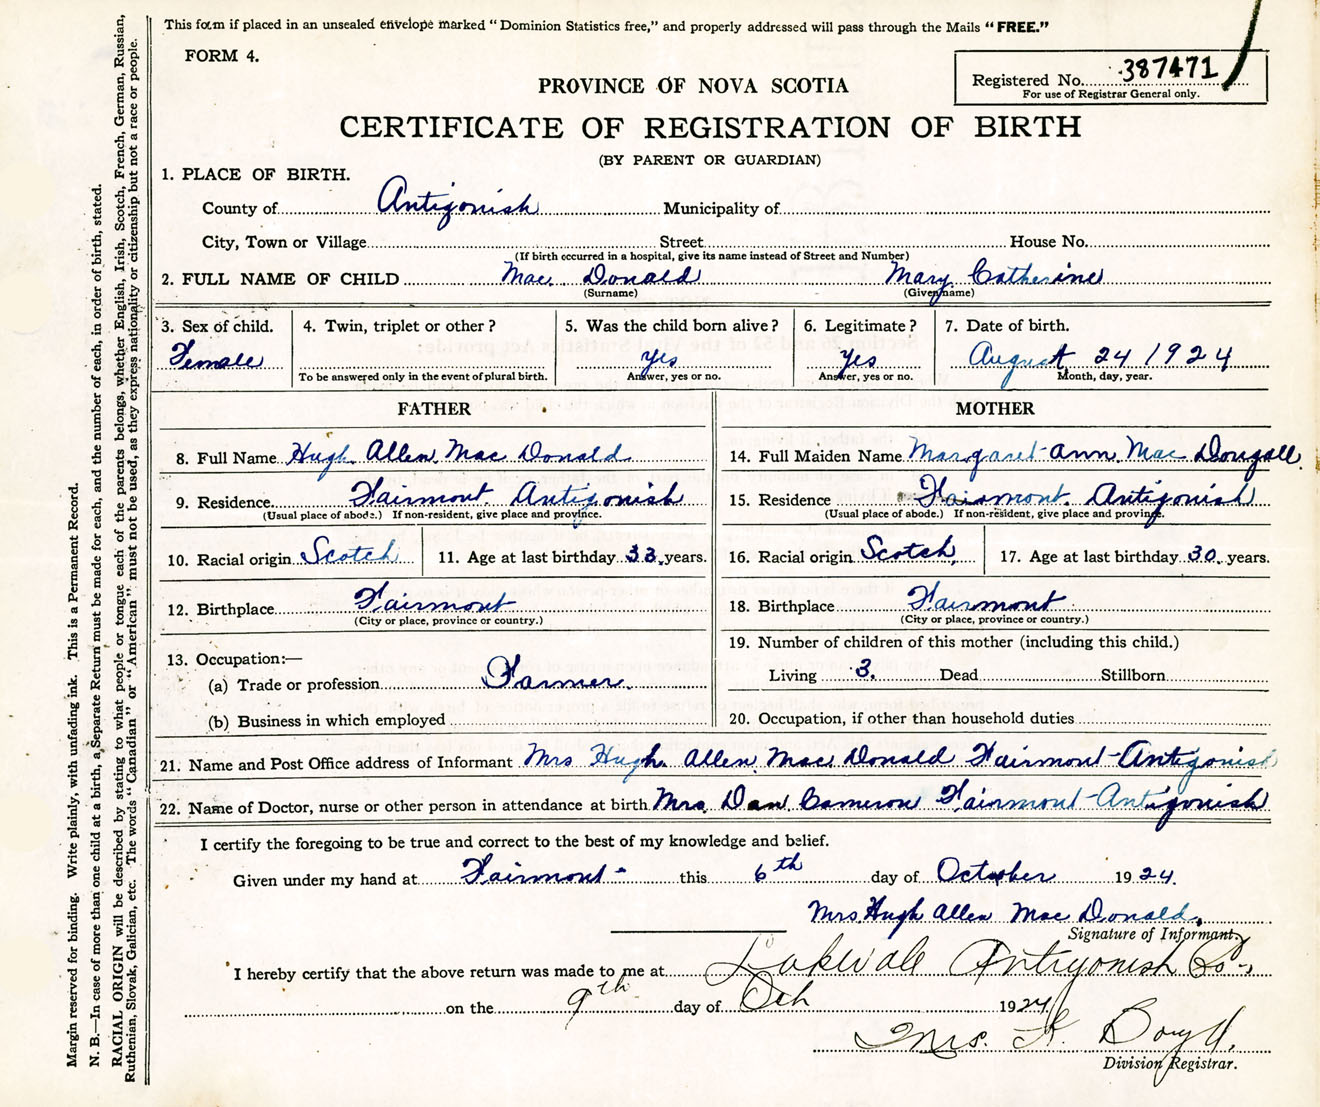 This form if placed in an unsealed envelope marked "Dominion Statistics free," and properly addressed will pass through the Mails "FREE."
FORM 4.
Registered No. 387471
For use of Registrar General only.
PROVINCE OF NOVA SCOTIA
CERTIFICATE OF REGISTRATION OF BIRTH
(BY PARENT OR GUARDIAN)
1. PLACE OF BIRTH.
County of Antigonish Municipality of
City, Town or Village Street House No.
(If birth occurred in a hospital, give its name instead of Street and Number)
2. FULL NAME OF CHILD Mac Donald Mary Catherine
(Surname) (Given name)
3. Sex of child. 4. Twin, triplet or other? 5. Was the child born alive? 6. Legitimate? 7. Date of birth.
Female yes Yes August 24 1924
To be answered only in the event of plural birth. Answer, yes or no. Answer, yes or no. Month, day, year.
FATHER MOTHER
8. Full Name Hugh Allen Mac Donald 14. Full Maiden Name Margaret Ann Mac Dougall
9. Residence Fairmont Antigonish 15. Residence Fairmont Antigonish
(Usual place of abode.) If non-resident, give place and province. (Usual place of abode.) If non-resident, give place and province.
10. Racial origin Scotch 11. Age at last birthday 33 years. 16. Racial origin Scotch 17. Age at last birthday 30 years.
12. Birthplace Fairmont 18. Birthplace Fairmont
(City or place, province or country.) (City or place, province or country.)
13. Occupation:— 19. Number of children of this mother (including this child.)
(a) Trade or profession Farmer Living 3. Dead Stillborn
(b) Business in which employed 20. Occupation, if other than household duties
21. Name and Post Office address of Informant Mrs Hugh Allen Mac Donald Fairmont-Antigonish
22. Name of Doctor, nurse or other person in attendance at birth Mrs Dan Cameron Fairmont-Antigonish
I certify the foregoing to be true and correct to the best of my knowledge and belief.
Given under my hand at Fairmont this 6th day of October 1924.
Mrs Hugh Allen Mac Donald
Signature of Informant.
I hereby certify that the above return was made to me at Lakevale Antigonish Co.
on the 9th day of Oct 1924
Mrs. K. Boyd.
Division Registrar.
Margin reserved for binding. Write plainly, with unfading ink. This is a Permanent Record.
N. B.—In case of more than one child at a birth, a Separate Return must be made for each, and the number of each, in order of birth, stated.
RACIAL ORIGIN will be described by stating to what people or tongue each of the parents belongs, whether English, Irish, Scotch, French, German, Russian,
Ruthenian, Slovak, Galician, etc. The words "Canadian" or "American" must not be used, as they express nationality or citizenship but not a race or people.